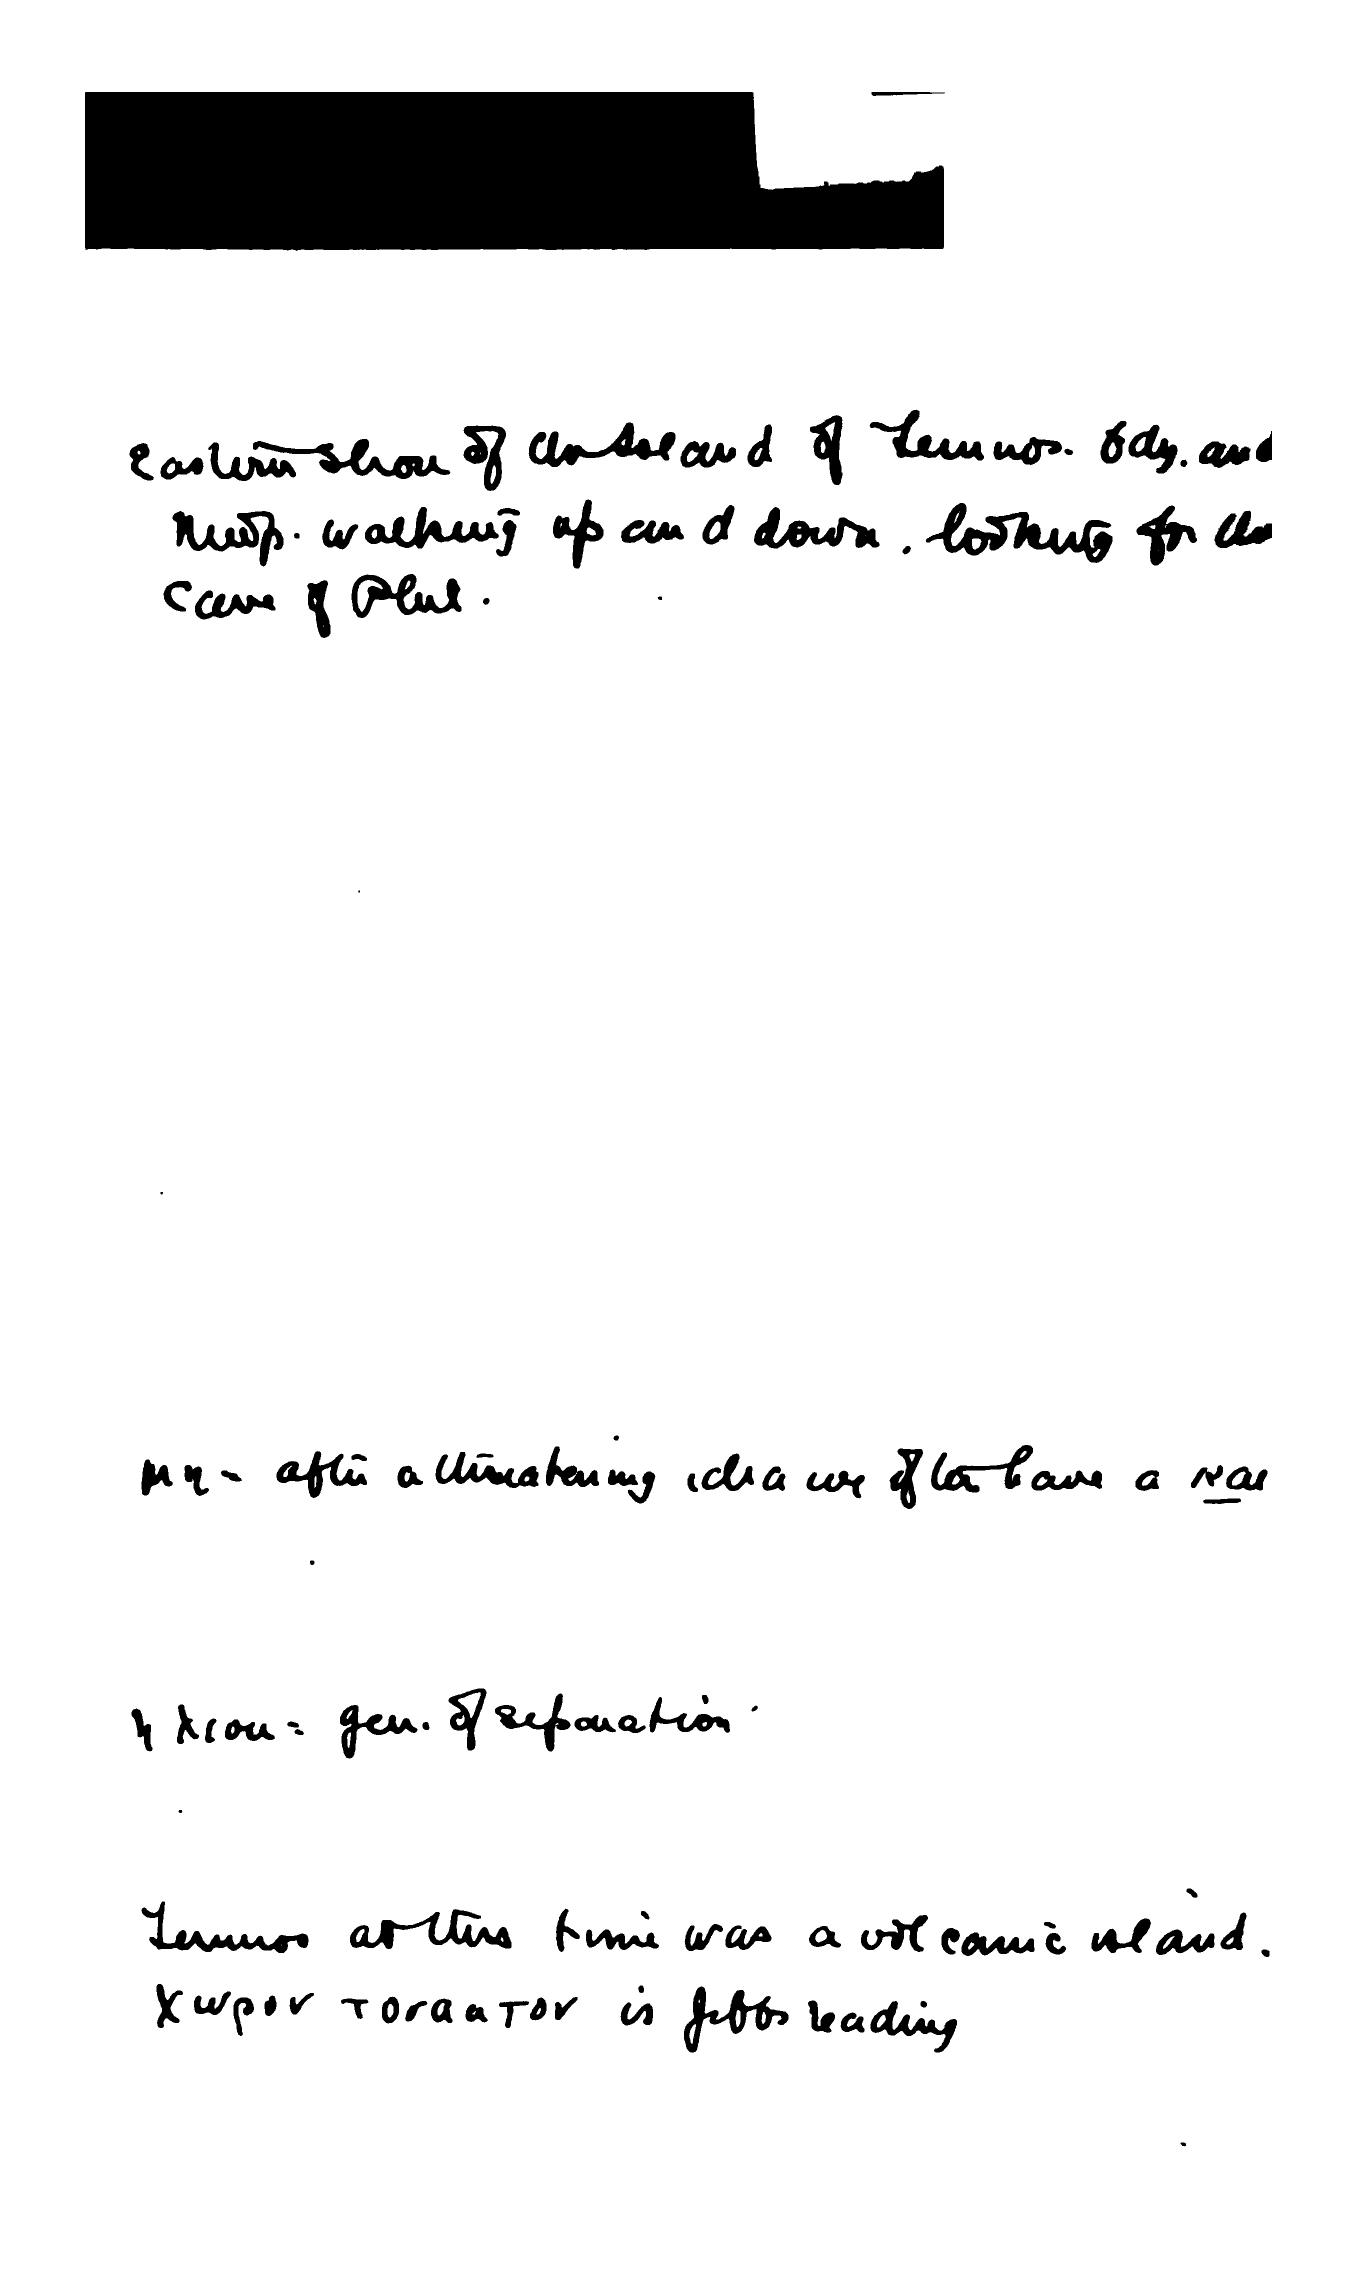 Eastern shore of the Island of Lemnos. Ody. and
Neop. walking up and down. looking for the
Cave of Phil.
μη - after a threatening idea we often have a
= gen. of separation
Lemnos at this time was a volcanic island.
χωρον is Jebbs reading